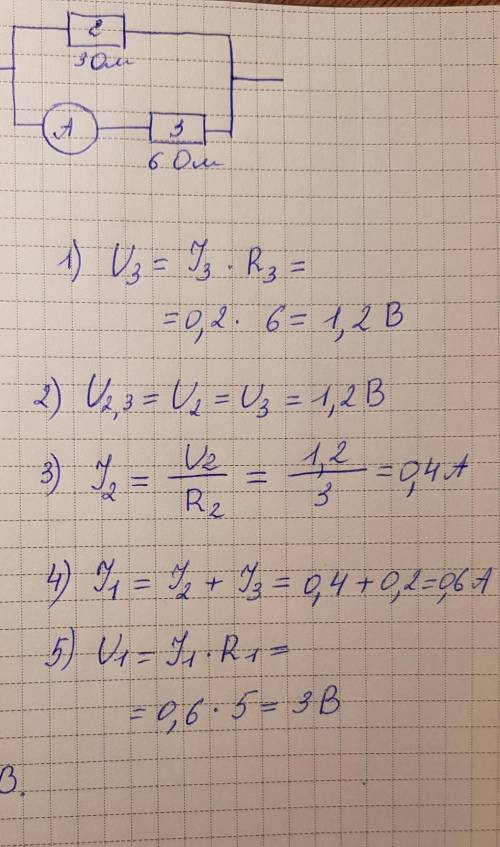 2
3 Ом
A
3
6 Ом
1) U₃ = I₃ · R₃ =
= 0,2 · 6 = 1,2 В
2) U₂,₃ = U₂ = U₃ = 1,2 В
3) I₂ = U₂/R₂ = 1,2/3 = 0,4 А
4) I₁ = I₂ + I₃ = 0,4 + 0,2 = 0,6 А
5) U₁ = I₁ · R₁ =
= 0,6 · 5 = 3 В
В.